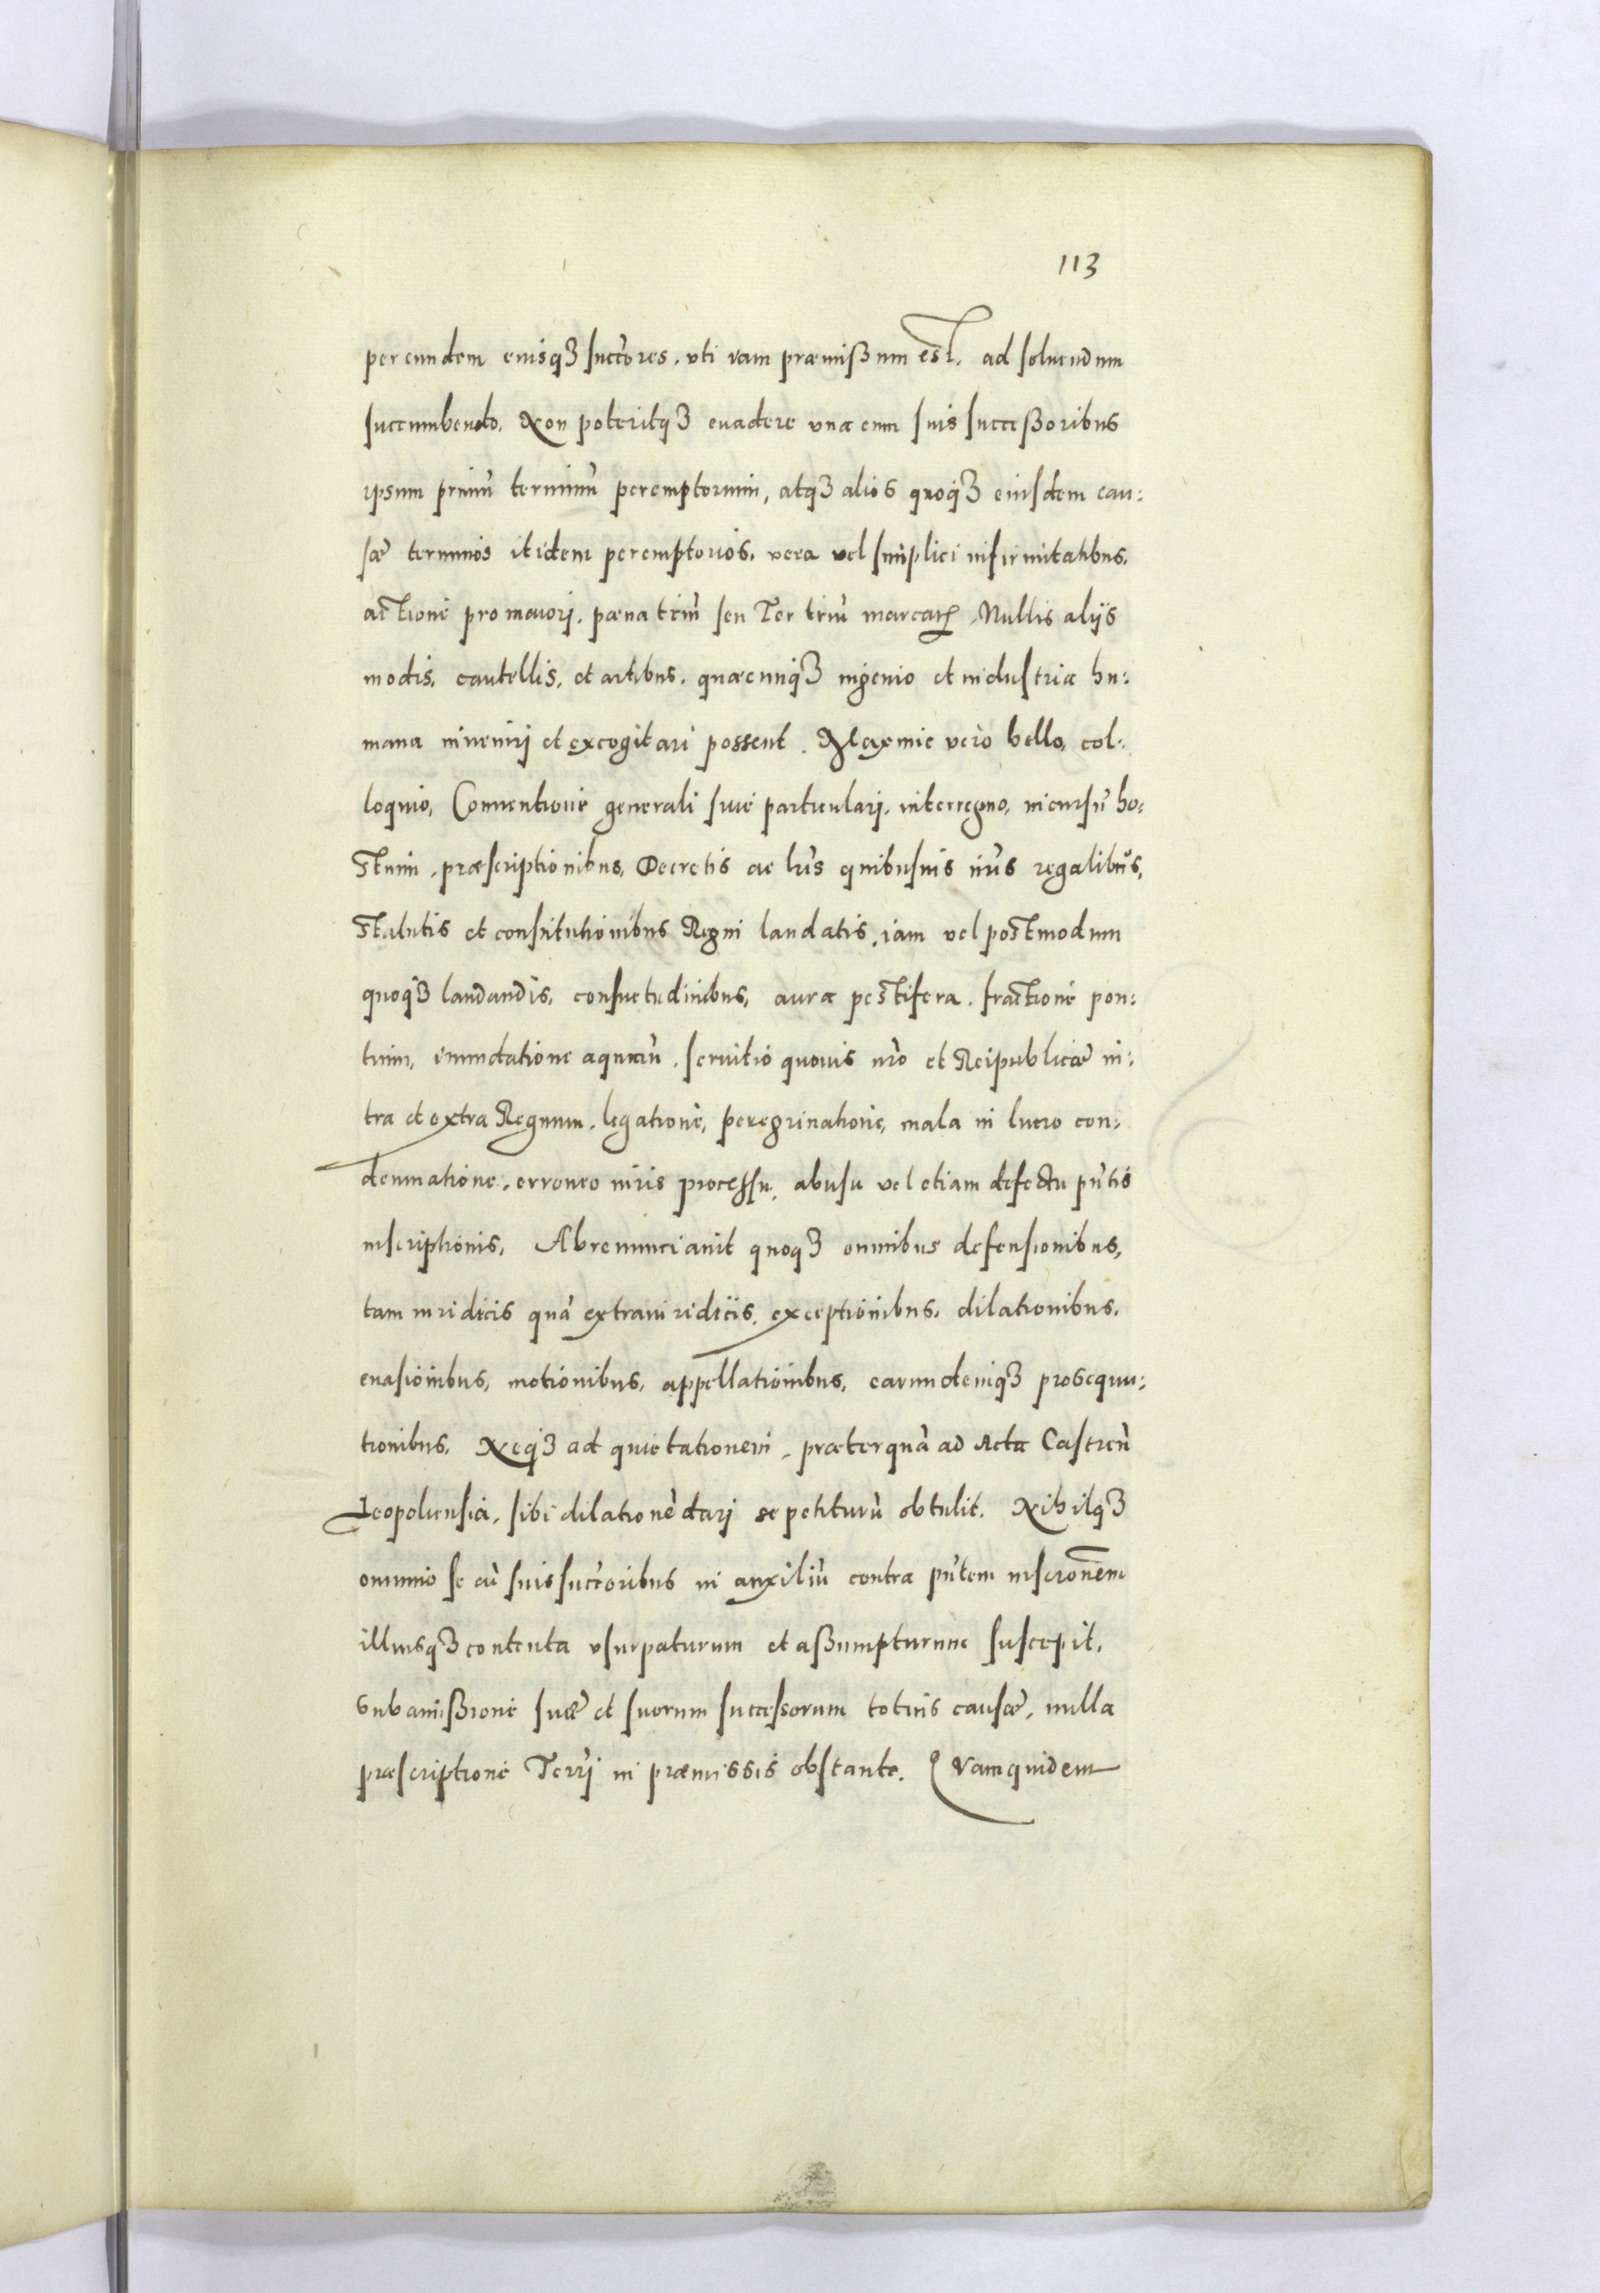 113
per eundem eiusq3 succ̃ores, vti iam præmissum est, ad soluendum
succumbendo. Non poteritq3 euadere una cum suis successoribus
ipsum primũ terminũ peremptorium, atq3 alios quoq3 eiusdem cau:
sæ terminos itidem peremptorios, vera vel simplici infirmitatibus,
actione pro maiori, pæna triũ seu Ter triũ marcarꝝ, Nullis alijs
modis, cautellis, et artibus, quæcunq3 ingenio et industria hu:
mana inueniri et excogitari possent. Maxime verò bello, col:
loquio, Conuentione generali siue particulari, interregno, incursũ ho:
stium, præscriptionibus, Decretis ac lr̃is quibusuis nr̃is regalibus,
statutis et constitutionibus Regni laudatis, iam vel postmodum
quoq3 laudandis, consuetudinibus, aura pestifera, fractione pon:
tium, inundatione aquarũ, seruitio quouis nr̃o et Reipublicæ in:
tra et extra Regnum, legatione, peregrinatione, mala in lucro con:
demnatione, erroneo iuris processu, abusu vel etiam defectu pñtis
inscriptionis, Abrenunciauit quoq3 omnibus defensionibus,
tam iuridicis quã extraiuridicis, exceptionibus, dilationibus,
euasionibus, motionibus, appellationibus, earundemq3 prosequu:
tionibus. Neq3 ad quietationem, præterquã ad Acta Castreñ
Leopoliensia, sibi dilationẽ dari se petiturũ obtulit. Nihilq3
omnino se cũ suis succ̃oribus in auxiliũ contra pñtem inscr̃onem
illiusq3 contenta vsurpaturum et assumpturum suscepit.
Sub amissione suæ et suorum successorum totius causæ, nulla
præscriptione Terr̃j in præmissis obstante. Vam quidem